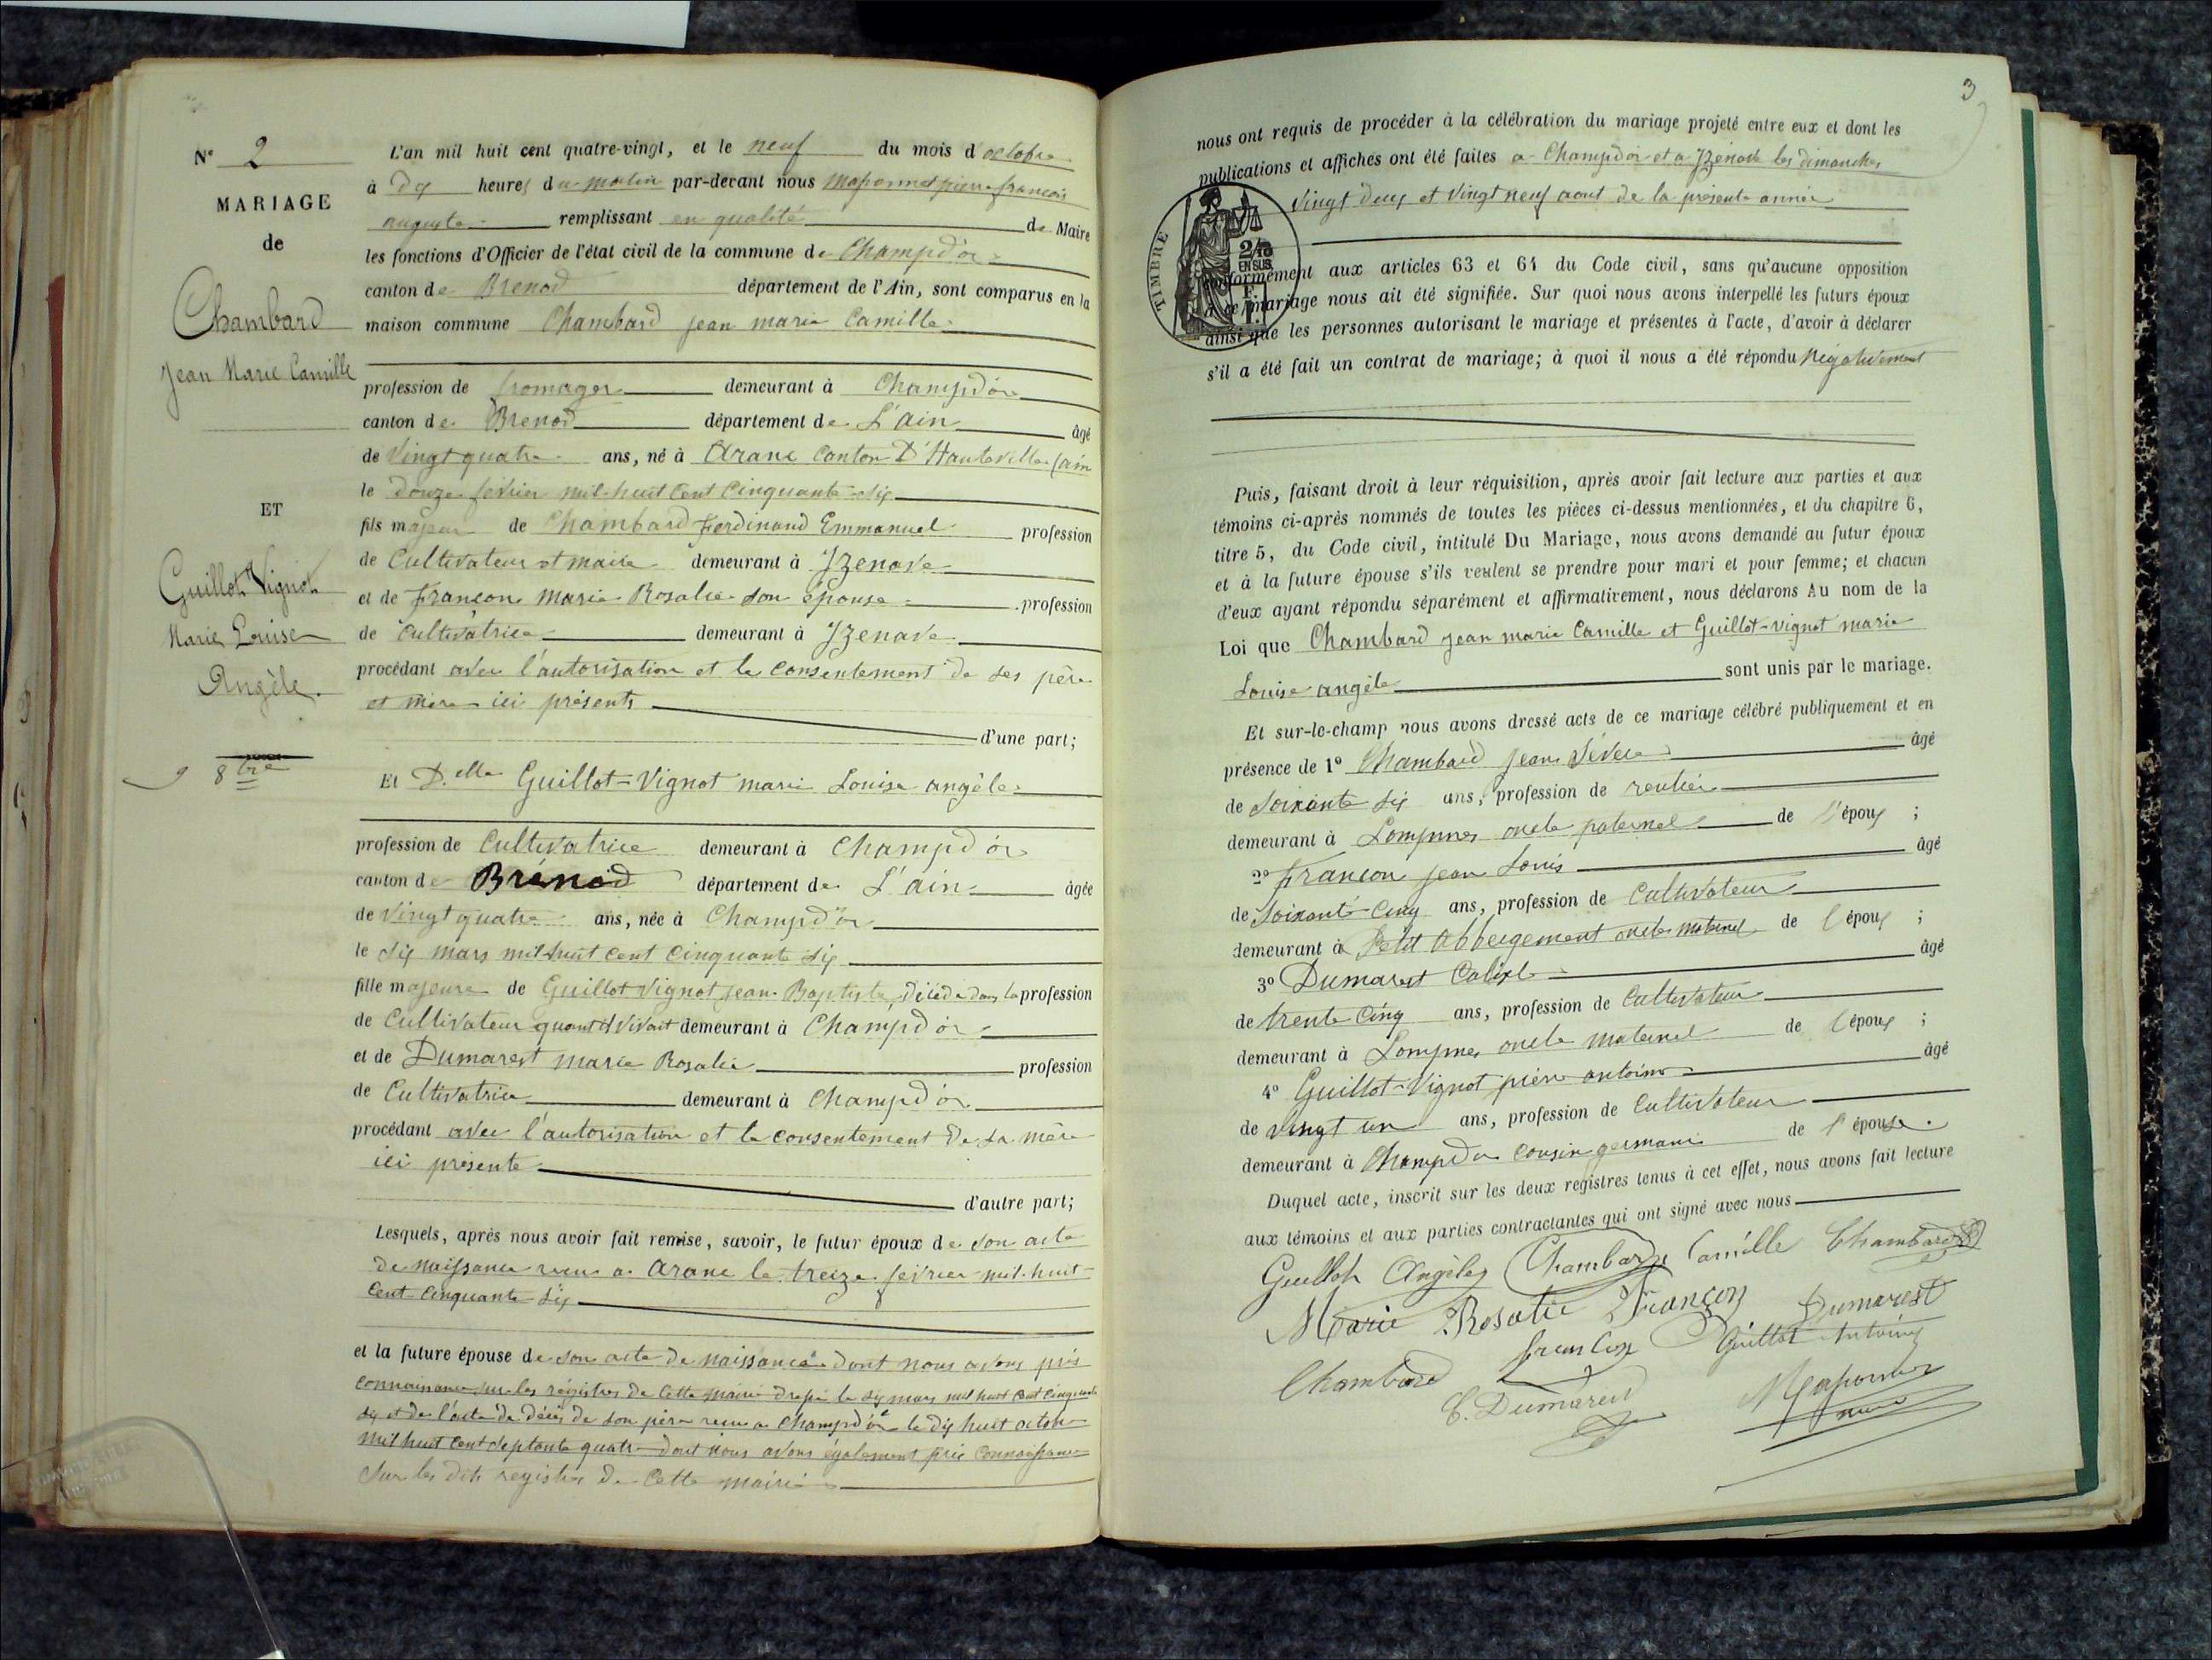 N° 2
MARIAGE
de
Chambard
Jean Marie Camille
ET
Guillot Vignot
Marie Louise
Angèle.
9 8bre
L'an mil huit cent quatre-vingt, et le neuf du mois d'octobre
à dix heures du matin par-devant nous pierre françois
auguste remplissant en qualité de Maire
les fonctions d'Officier de l'état civil de la commune de Champd'or
canton de Brenod département de l'Ain, sont comparus en la
maison commune Chambard jean marie Camille
profession de fromager demeurant à Champd'or
canton de Brenod département de L'ain âgé
de vingt quatre ans, né à Arane Canton D'Hauteville (ain
le douze fevrier mil-huit Cent Cinquante-six
fils majeur de Chambard Ferdinand Emmanuel profession
de Cultivateur et maire demeurant à Izenave
et de Francon Marie Rosalie son épouse profession
de Cultivatrice demeurant à Izenave
procédant avec l'autorisation et le consentement de ses père
et mère ici présents
d'une part;
Et D.elle Guillot-Vignot marie Louise angèle
profession de Cultivatrice demeurant à Champd'or
canton de Brénod département de L'ain âgée
de vingt quatre ans, née à Champd'or
le six mars mil huit cent cinquante six
fille majeure de Guillot Vignot jean-Baptiste, décédé dans la profession
de Cultivateur quant il vivait demeurant à Champd'or
et de Dumarest marie Rosalie profession
de Cultivatrice demeurant à Champd'or
procédant avec l'autorisation et le consentement de sa mère
ici présente
d'autre part;
Lesquels, après nous avoir fait remise, savoir, le futur époux de son acte
de naissance reçu a Arane le treize fevrier mil-huit-
Cent-Cinquante-six
et la future épouse de son acte de naissance dont nous avons pris
connaissance sur les régistres de cette mairie le six mars mil huit cent cinquante
six et de l'acte de décès de son père reçu a Champd'or le dix huit octobre
mil huit cent septante quatre dont nous avons également pris connaissance
sur les dits registres de Cette mairie
3
nous ont requis de procéder à la célébration du mariage projeté entre eux et dont les
publications et affiches ont été faites a Champd'or et a Izenave les dimanches
vingt deux et vingt neuf aout de la présente année
TIMBRE
2/10
EN SUS
conformément aux articles 63 et 64 du Code civil, sans qu'aucune opposition
à ce mariage nous ait été signifiée. Sur quoi nous avons interpellé les futurs époux
ainsi que les personnes autorisant le mariage et présentes à l'acte, d'avoir à déclarer
s'il a été fait un contrat de mariage; à quoi il nous a été répondu négativement
Puis, faisant droit à leur réquisition, après avoir fait lecture aux parties et aux
témoins ci-après nommés de toutes les pièces ci-dessus mentionnées, et du chapitre 6,
titre 5, du Code civil, intitulé Du Mariage, nous avons demandé au futur époux
et à la future épouse s'ils veulent se prendre pour mari et pour femme; et chacun
d'eux ayant répondu séparément et affirmativement, nous déclarons Au nom de la
Loi que Chambard jean marie Camille et Guillot-vignot marie
Louise angèle sont unis par le mariage.
Et sur-le-champ nous avons dressé acte de ce mariage célébré publiquement et en
présence de 1° Chambard jean Sévère âgé
de soixante six ans, profession de rentier
demeurant à Lompnes oncle paternel de l'époux ;
2° Francon jean Louis âgé
de soixante-cinq ans, profession de Cultivateur
demeurant à Petit Abbergement oncle maternel de l'époux ;
3° Dumarest Calixte âgé
de trente cinq ans, profession de Cultivateur
demeurant à Lompnes oncle maternel de l'époux ;
4° Guillot-Vignot pierre antoine âgé
de vingt un ans, profession de Cultivateur
demeurant à Champdor cousin germain de l'épouse.
Duquel acte, inscrit sur les deux registres tenus à cet effet, nous avons fait lecture
aux témoins et aux parties contractantes qui ont signé avec nous
Guillot Angèle Chambard Camille Chambard
Marie Rosalie Françon Dumarest
Chambard francon Guillot Antoine
C. Dumarest